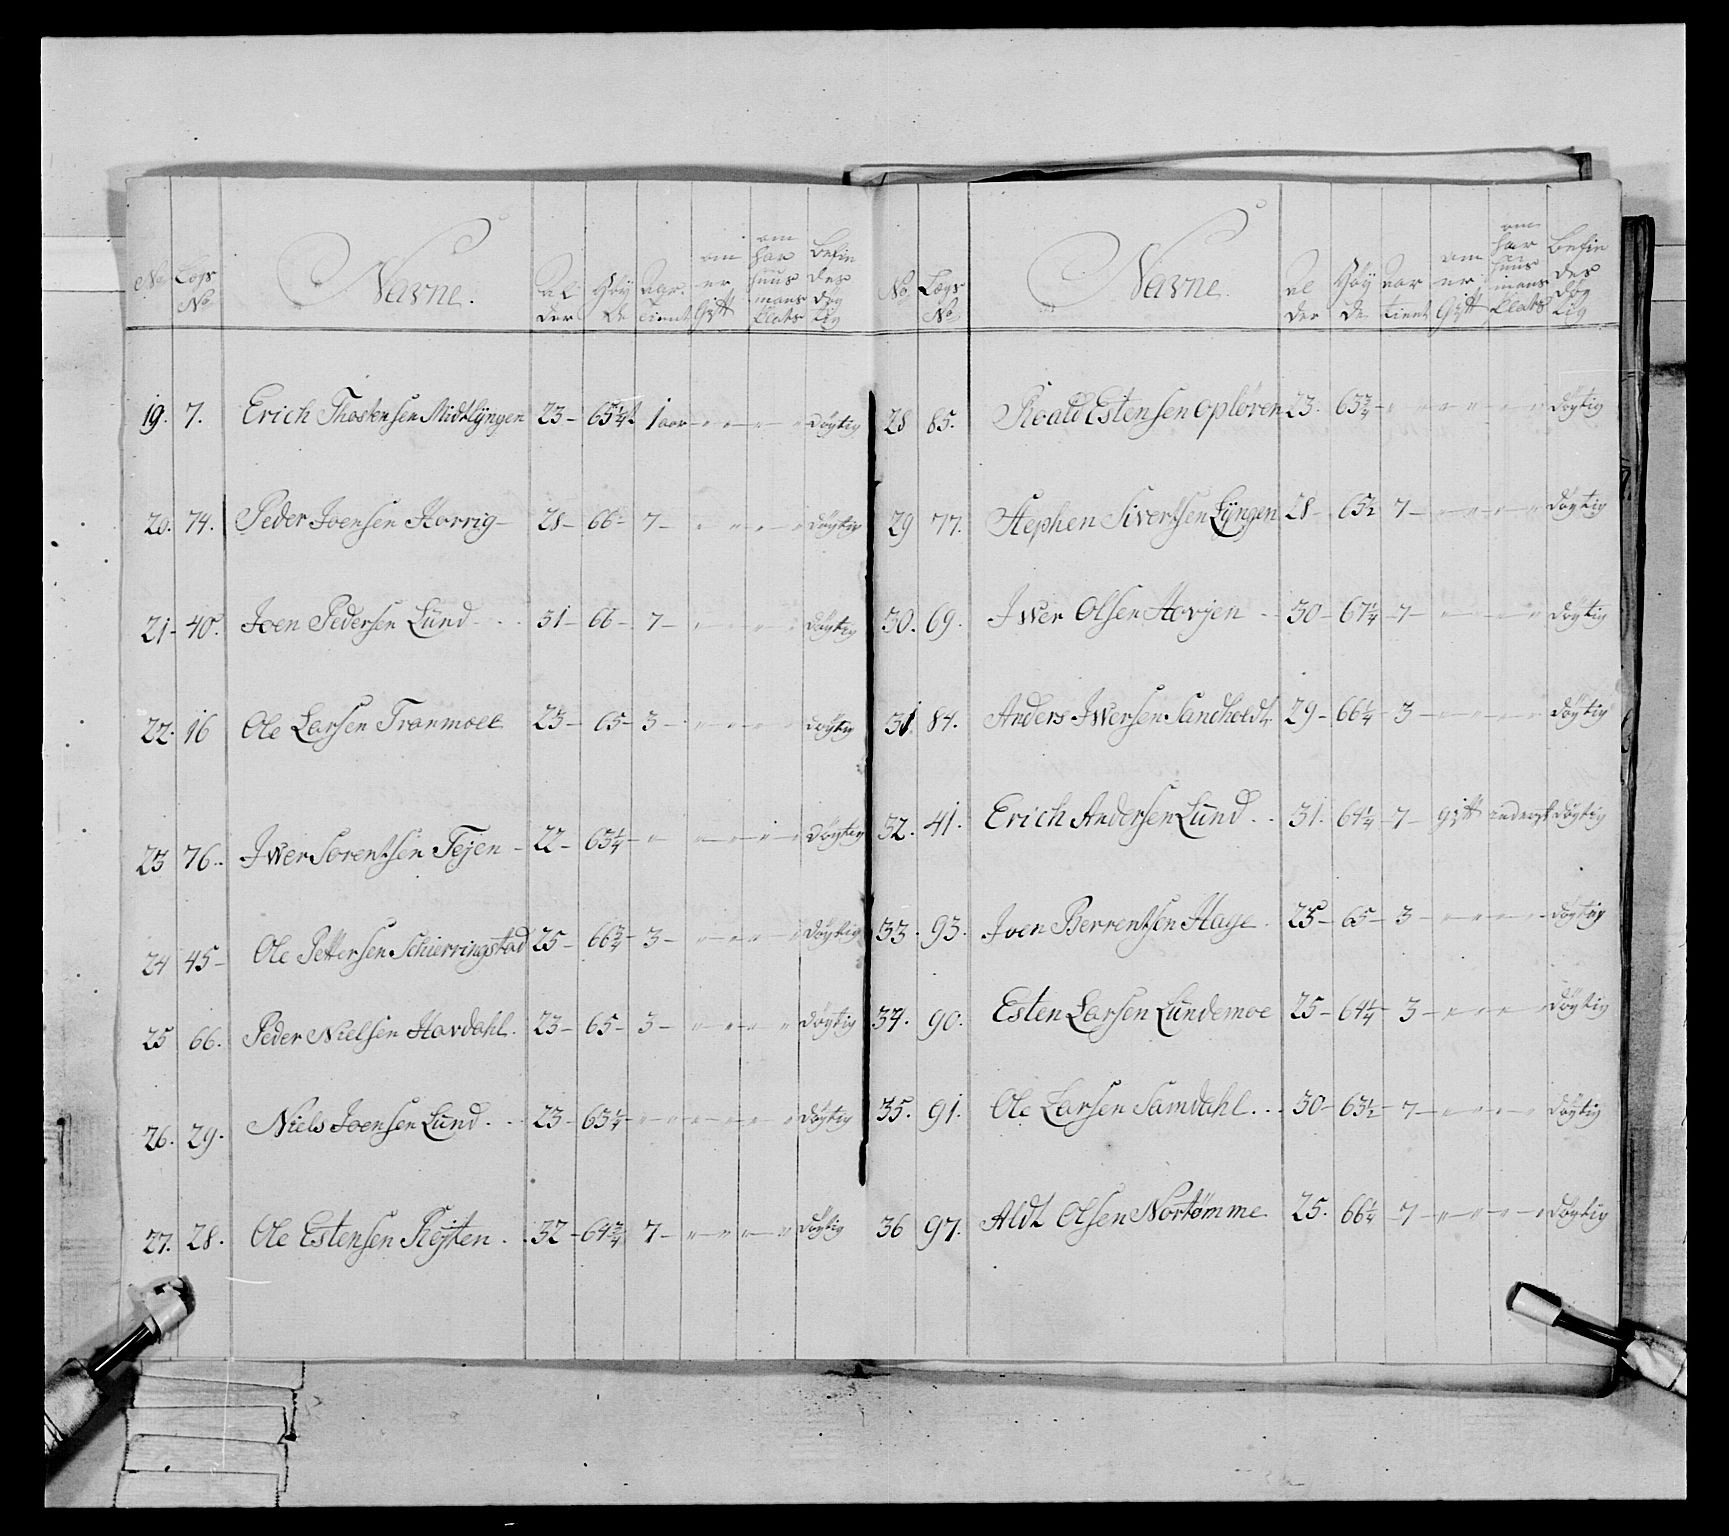 No Lægs No Navne. Al der Høy de Aar tient om er Gift om har huus mans Plats befin des døg tig
19. 7. Erich Thostensen Midtlÿngen 23 - 65 1/4 1 aar - " - " - " - " døgtig
20. 74. Peder Joensen Korrig - 28 - 66 - 7 - " - " - " - " døgtig
21 - 40. Joen Pedersen Lund 31 - 66 - 7 - " - " - " - " døgtig
22. 16 Ole Larsen Tranmoee 23 - 65 - 3 - " - " - " - " døgtig
23 76. Iwer Sorentsen Tejen - 22 - 63 1/4 - " - " - " - " døgtig
24 45 - Ole Pettersen Schierringstad 25 - 66 3/4 3 - " - " - " - " døgtig
25 66. Peder Nielsen Havdahl. 23 - 65 - 3 - " - " - " - " døgtig
26. 29. Niels Joensen Lund 23 - 63 1/4 - " - " - " - " døgtig
27. 28. Ole Estensen Røjten 32 - 64 3/4 7 - " - " - " - " døgtig
No Lægs No Navne. al der Høy de aar tient om er Gift om har huus mans Plats befin des døg tig
28 85. Roald Estensen opløren 23. 63 3/4 - " - " - " - " døgtig
29 77. Stephen Sivertsen Lÿngen 28 - 65 1/2 7 - " - " - " døgtig
30. 69. Iwer Olsen Hovjen 30 - 67 1/4 - 7 - " - " - " døgtig
31. 84. Anders Iwersen Sandholdt 29 - 66 1/4 - 3 - " - " - " døgtig
32. 41. Erich Andersen Lund 31. 64 1/4 7 - gift inderst døgtig
33. 93. Joen Berrentsen Hage 25 - 65 - 3 - " - " - " døgtig
34. 90. Esten Larsen Lundemoe 25 - 64 1/4 3 - " - " - " døgtig
35. 91. Ole Larsen Samdahl 30 - 63 1/2 - 7 - " - " - " døgtig
36 97. Aldt Olsen Nortømme 25. 66 1/4 - 7 - " - " - " døgtig